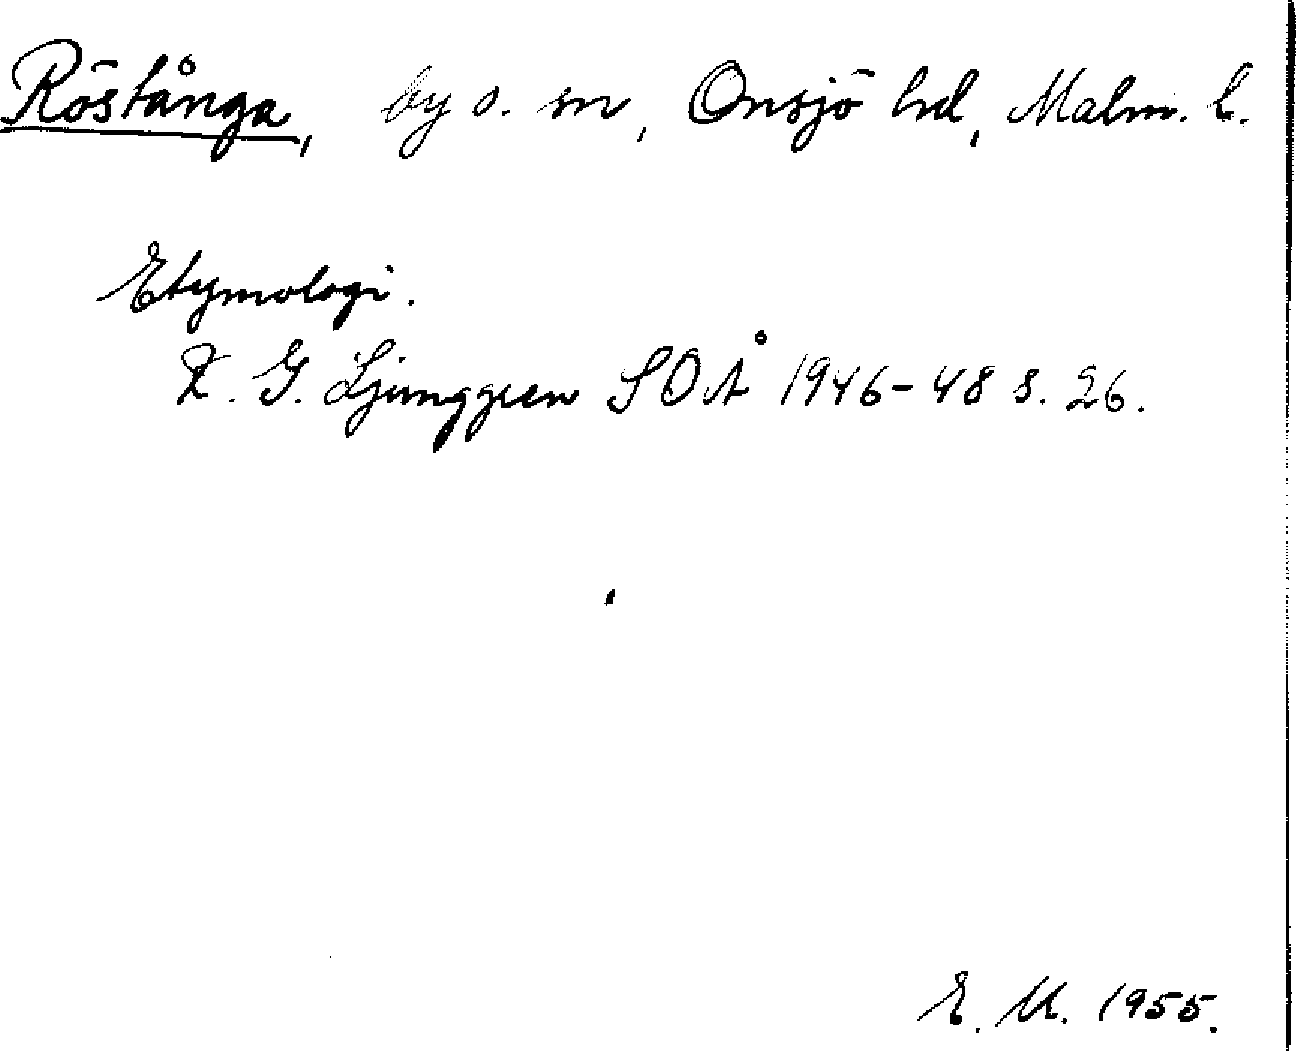 Röstånga, by o. sn, Onsjö hd, Malm. l.
Etymologi.
K. G. Ljunggren SOÅ 1946-48 s. 26.
E. M. 1955.